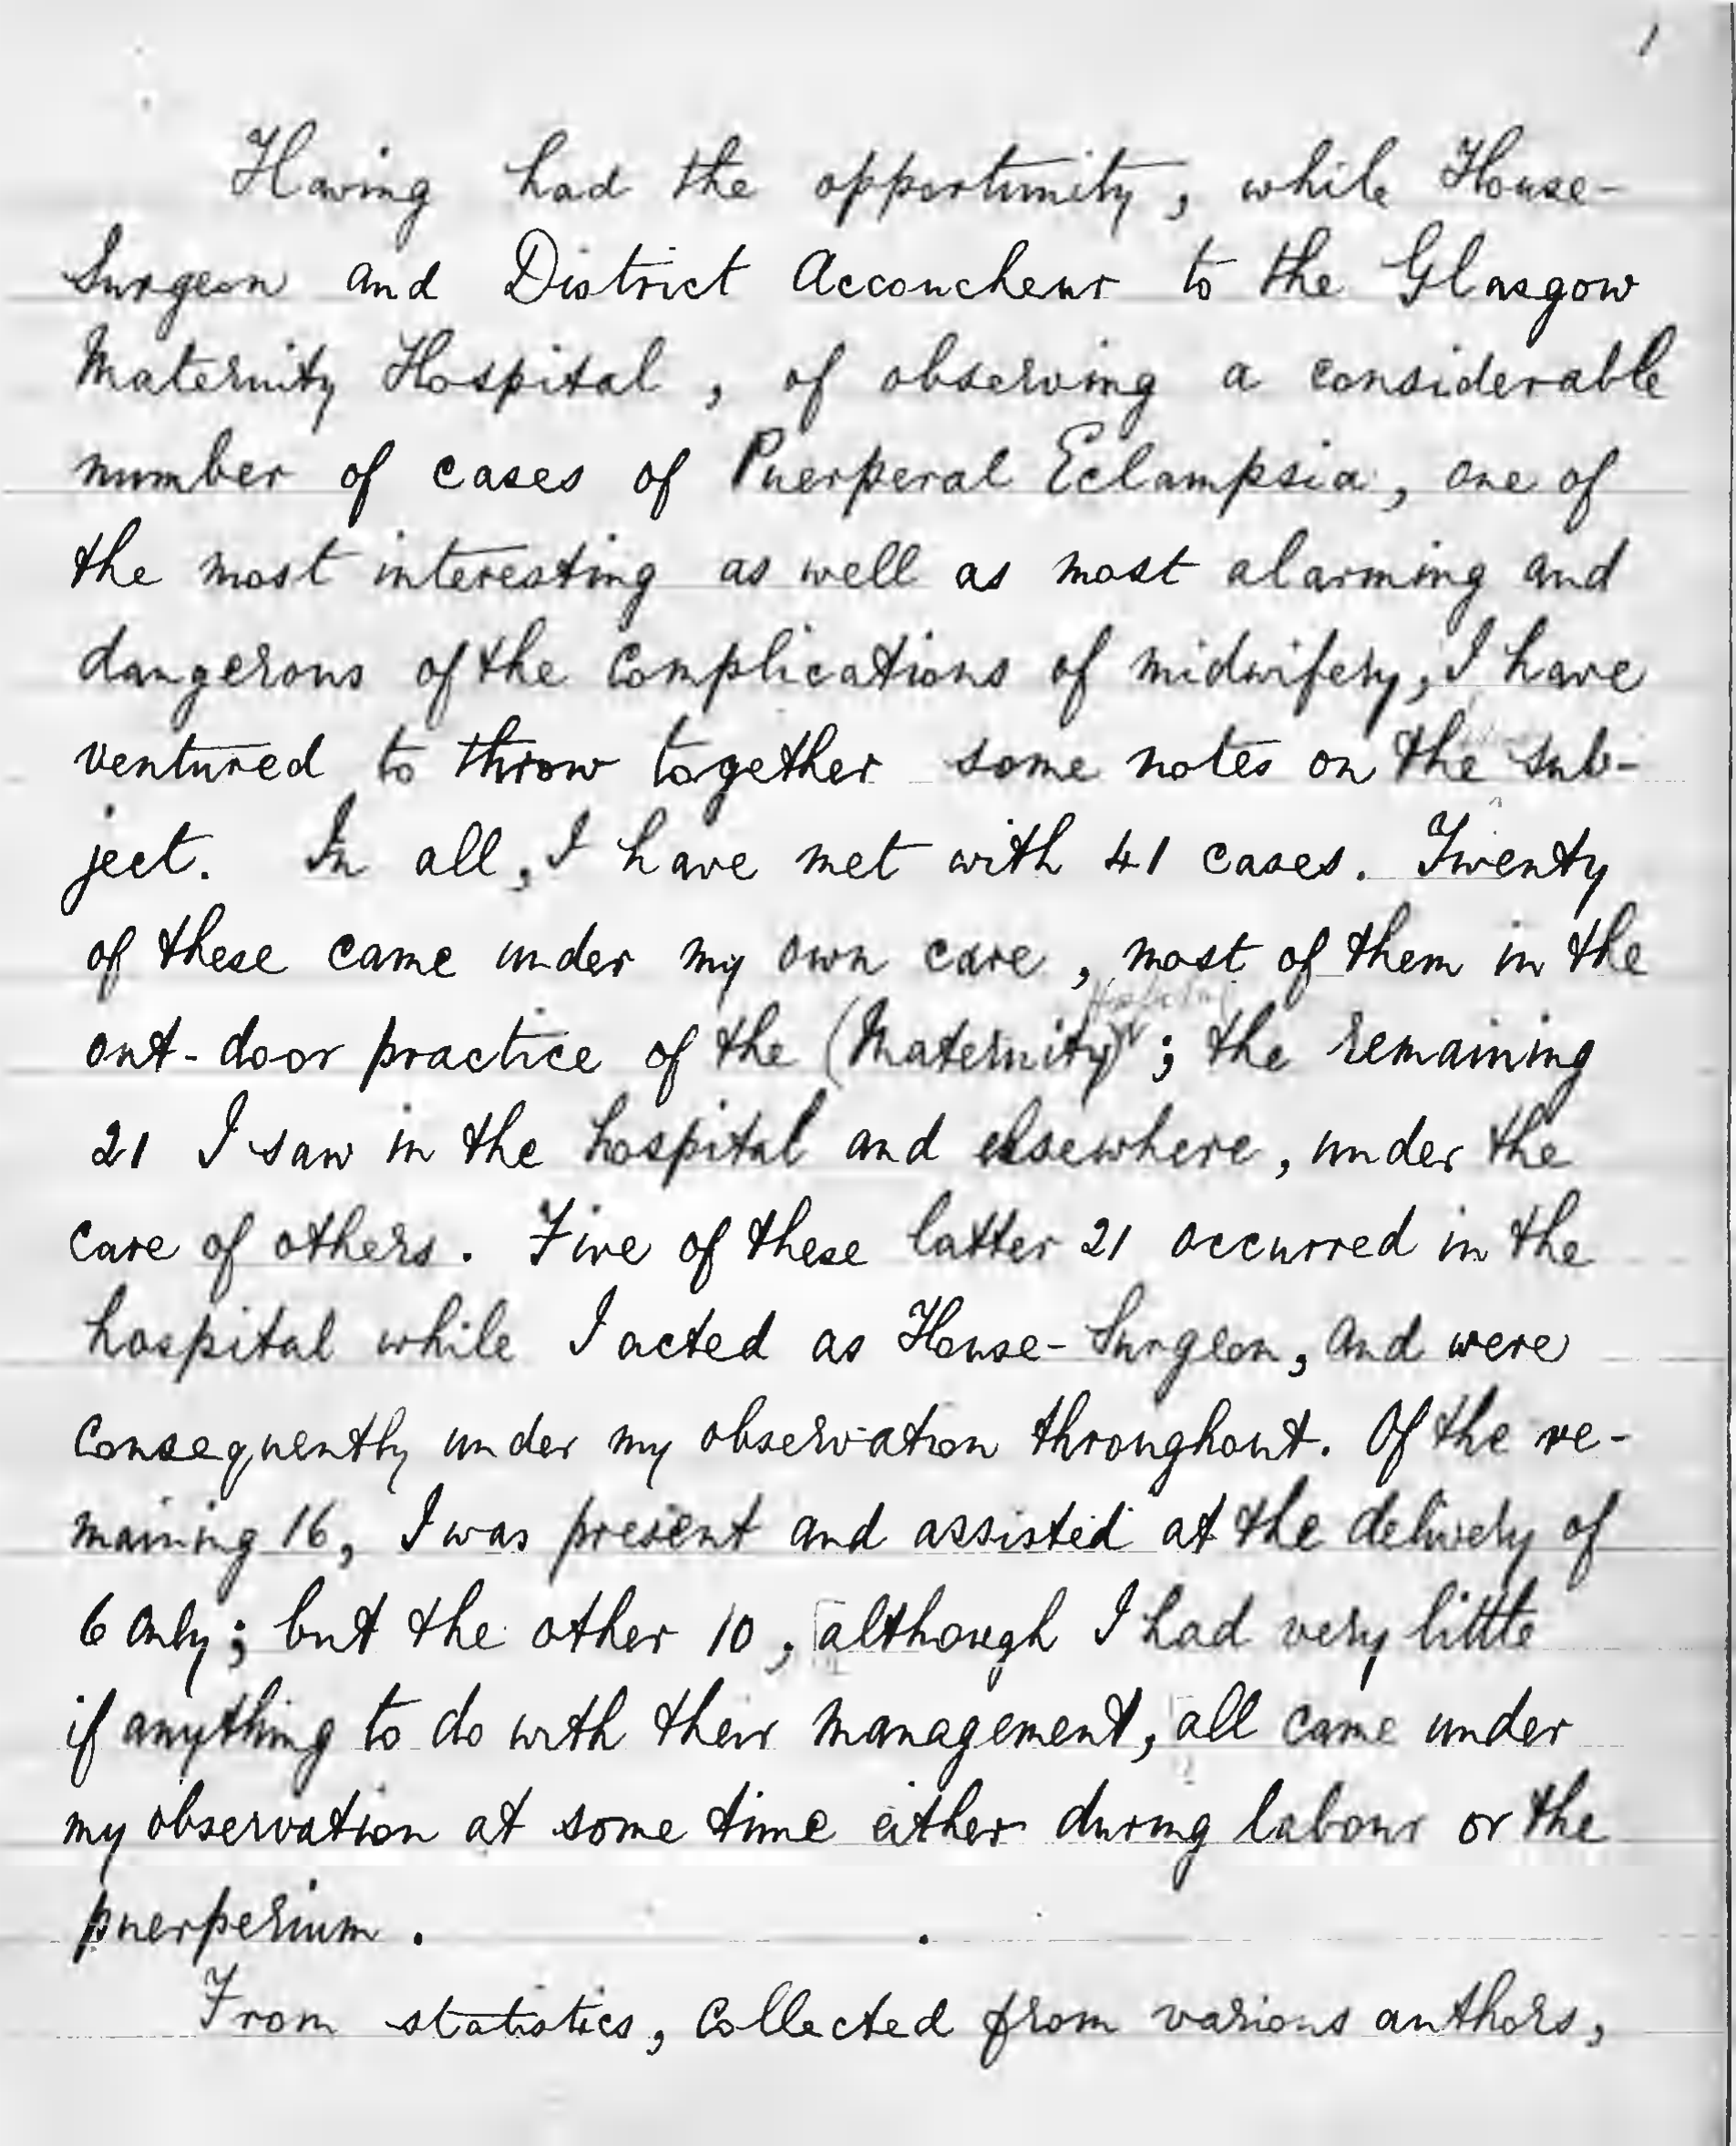 1
Having had the opportunity, while House-
Surgeon and District Accoucheur to the Glasgow
Maternity Hospital, of observing a considerable
number of cases of Puerperal Eclampsia, one of
the most interesting as well as most alarming and
dangerous of the complications of midwifery, I have
ventured to throw together some notes on the sub-
ject. In all, I have met with 41 cases. Twenty
of these came under my own care, most of them in the
Hospital
out-door practice of the (Maternity); the remaining
21 I saw in the hospital and elsewhere, under the
care of others. Five of these latter 21 occurred in the
hospital while I acted as House-Surgeon, and were
consequently under my observation throughout. Of the re-
maining 16, I was present and assisted at the delivery of
6 only; but the other 10, although I had very little
if anything to do with their management, all came under
my observation at some time either during labour or the
puerperium.
From statistics, collected from various authors,